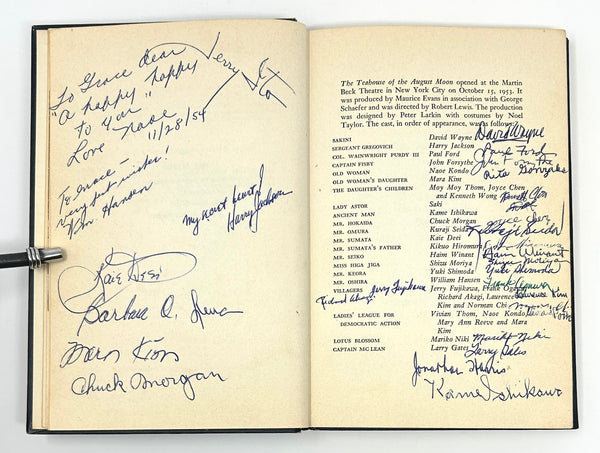 To Grace dear
"A happy happy
to you"
Love Naoe
11/28/54
Jerry Ito
To Grace -
Very best wishes!
Wm Hansen
my secret heart
Harry Jackson
Kaie Deei
Barbara
Chuck Morgan
The Teahouse of the August Moon opened at the Martin
Beck Theatre in New York City on October 15, 1953. It
was produced by Maurice Evans in association with George
Schaefer and was directed by Robert Lewis. The production
was designed by Peter Larkin with costumes by Noel
Taylor. The cast, in order of appearance, was as follows:
SAKINI David Wayne David Wayne
SERGEANT GREGOVICH Harry Jackson
COL. WAINWRIGHT PURDY III Paul Ford Paul Ford
CAPTAIN FISBY John Forsythe John Forsythe
OLD WOMAN Naoe Kondo Rita Gonzales
OLD WOMAN'S DAUGHTER Mara Kim
THE DAUGHTER'S CHILDREN Moy Moy Thom, Joyce Chen
and Kenneth Wong
LADY ASTOR Saki
ANCIENT MAN Kame Ishikawa
MR. HOKAIDA Chuck Morgan Joyce Chen
MR. OMURA Kuraji Seida Kuraji Seida
MR. SUMATA Kaie Deei
MR. SUMATA'S FATHER Kikuo Hiromura Kikuo Hiromura
MR. SEIKO Haim Winant Haim Winant
MISS HIGA JIGA Shizu Moriya Shizu Moriya
MR. KEORA Yuki Shimoda Yuki Shimoda
MR. OSHIRA William Hansen
VILLAGERS Jerry Fujikawa Jerry Fujikawa, Frank Ogawa Frank Ogawa
Richard Akagi Richard Akagi, Laurence Laurence Kim
Kim and Norman Chi
LADIES' LEAGUE FOR Vivian Thom, Naoe Kondo
DEMOCRATIC ACTION Mary Ann Reeve and Mara
Kim
LOTUS BLOSSOM Mariko Niki Mariko Niki
CAPTAIN MC LEAN Larry Gates Larry Gates
Jonathan Harris
Kame Ishikawa